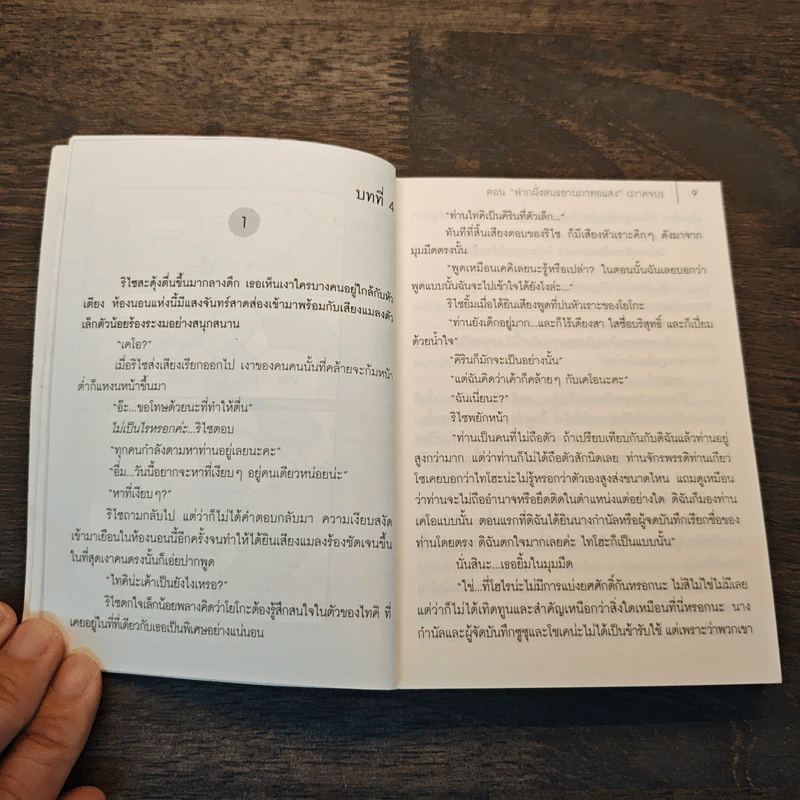 บทที่ 4
1
ริไซสะดุ้งตื่นขึ้นมากลางดึก เธอเห็นเงาใครบางคนอยู่ใกล้กับหัว
เตียง ห้องนอนแห่งนี้มีแสงจันทร์สาดส่องเข้ามาพร้อมกับเสียงแมลงตัว
เล็กตัวน้อยร้องระงมอย่างสนุกสนาน
"เคโอ?"
เมื่อริไซส่งเสียงเรียกออกไป เงาของคนคนนั้นที่คล้ายจะก้มหน้า
ต่ำก็แหงนหน้าขึ้นมา
"อ๊ะ...ขอโทษด้วยนะที่ทำให้ตื่น"
ไม่เป็นไรหรอกค่ะ...ริไซตอบ
"ทุกคนกำลังตามหาท่านอยู่เลยนะคะ"
"อื่ม...วันนี้อยากจะหาที่เงียบๆ อยู่คนเดียวหน่อยน่ะ"
"หาที่เงียบๆ?"
ริไซถามกลับไป แต่ว่าก็ไม่ได้คำตอบกลับมา ความเงียบสงัด
เข้ามาเยือนในห้องนอนนี้อีกครั้งจนทำให้ได้ยินเสียงแมลงร้องชัดเจนขึ้น
ในที่สุดเงาคนตรงนั้นก็เอ่ยปากพูด
"ไทคิน่ะเค้าเป็นยังไงเหรอ?"
ริไซตกใจเล็กน้อยพลางคิดว่าโยโกะต้องรู้สึกสนใจในตัวของไทคิ ที่
เคยอยู่ในที่ที่เดียวกับเธอเป็นพิเศษอย่างแน่นอน
ตอน "ฟากฝั่งสนธยานภาทอแสง" (ภาคจบ) 9
"ท่านไทคิเป็นคิรินที่ตัวเล็ก..."
ทันทีที่สิ้นเสียงตอบของริไซ ก็มีเสียงหัวเราะคิกๆ ดังมาจาก
มุมมืดตรงนั้น
"พูดเหมือนเคคิเลยนะรู้หรือเปล่า? ในตอนนั้นฉันเลยบอกว่า
พูดแบบนั้นฉันจะไปเข้าใจได้ยังไงล่ะ..."
ริไซยิ้มเมื่อได้ยินเสียงพูดที่ปนหัวเราะของโยโกะ
"ท่านยังเด็กอยู่มาก...และก็ไร้เดียงสา ใสซื่อบริสุทธิ์ และก็เปี่ยม
ด้วยน้ำใจ"
"คิรินก็มักจะเป็นอย่างนั้น"
"แต่ฉันคิดว่าเค้าก็คล้ายๆ กับเคโอนะคะ"
"ฉันเนี่ยนะ?"
ริไซพยักหน้า
"ท่านเป็นคนที่ไม่ถือตัว ถ้าเปรียบเทียบกันกับดิฉันแล้วท่านอยู่
สูงกว่ามาก แต่ว่าท่านก็ไม่ได้ถือตัวสักนิดเลย ท่านจักรพรรดิท่านเกียว
โซเคยบอกว่าไทโฮะน่ะไม่รู้หรอกว่าตัวเองสูงส่งขนาดไหน แถมดูเหมือน
ว่าท่านจะไม่ถืออำนาจหรือยึดติดในตำแหน่งแต่อย่างใด ดิฉันก็มองท่าน
เคโอแบบนั้น ตอนแรกที่ดิฉันได้ยินนางกำนัลหรือผู้จดบันทึกเรียกชื่อของ
ท่านโดยตรง ดิฉันตกใจมากเลยค่ะ ไทโฮะก็เป็นแบบนั้น"
นั่นสินะ...เธอยิ้มในมุมมืด
"ใช่...ที่โฮไรน่ะไม่มีการแบ่งยศศักดิ์กันหรอกนะ ไม่สิไม่ใช่ไม่มีเลย
แต่ว่าก็ไม่ได้เทิดทูนและสำคัญเหนือกว่าสิ่งใดเหมือนที่นี่หรอกนะ นาง
กำนัลและผู้จัดบันทึกซูซุและโชเคน่ะไม่ได้เป็นข้ารับใช้ แต่เพราะว่าพวกเขา